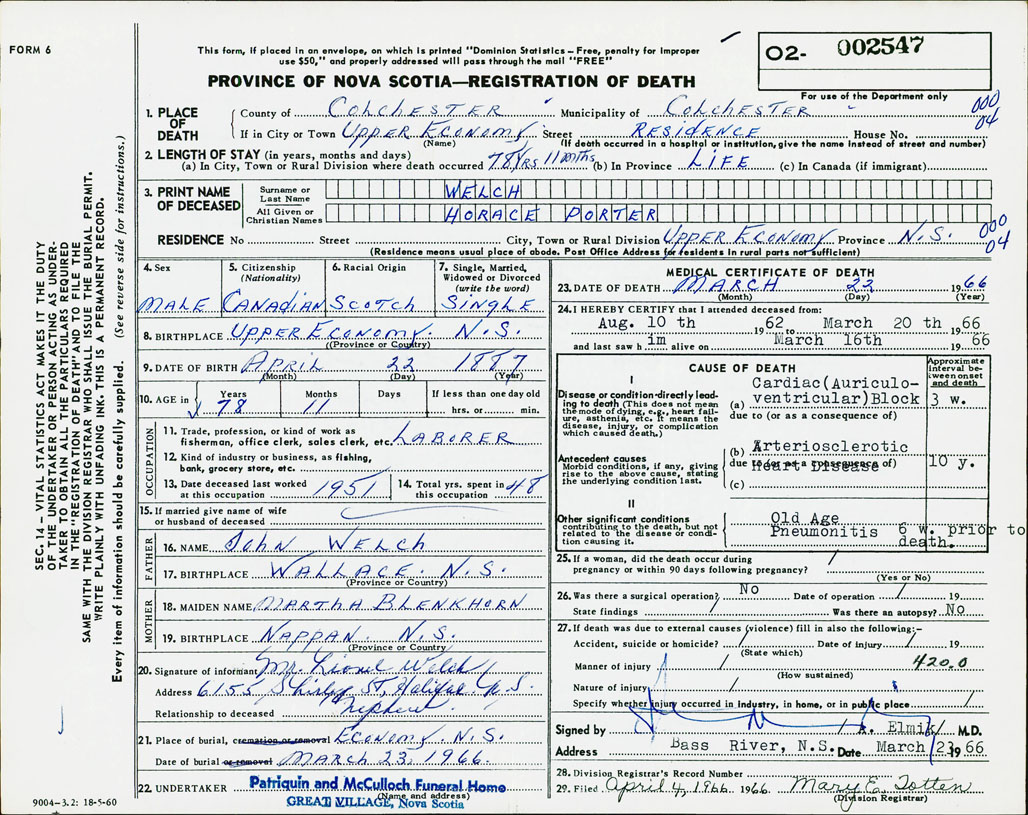 FORM 6
This form, if placed in an envelope, on which is printed "Dominion Statistics – Free, penalty for improper
use $50," and properly addressed will pass through the mail "FREE"
O2- 002547
For use of the Department only
PROVINCE OF NOVA SCOTIA—REGISTRATION OF DEATH
SEC. 14 – VITAL STATISTICS ACT MAKES IT THE DUTY
OF THE UNDERTAKER OR PERSON ACTING AS UNDER-
TAKER TO OBTAIN ALL THE PARTICULARS REQUIRED
IN THE "REGISTRATION OF DEATH" AND TO FILE THE
SAME WITH THE DIVISION REGISTRAR WHO SHALL ISSUE THE BURIAL PERMIT.
WRITE PLAINLY WITH UNFADING INK. THIS IS A PERMANENT RECORD.
Every item of information should be carefully supplied. (See reverse side for instructions.)
1. PLACE OF DEATH
County of COLCHESTER Municipality of COLCHESTER
000
04
If in City or Town UPPER ECONOMY Street RESIDENCE House No.
(Name) (If death occurred in a hospital or institution, give the name instead of street and number)
2. LENGTH OF STAY (in years, months and days)
(a) In City, Town or Rural Division where death occurred 78 YRS 11 months (b) In Province LIFE (c) In Canada (if immigrant)
3. PRINT NAME OF DECEASED
Surname or Last Name WELCH
All Given or Christian Names HORACE PORTER
000
04
RESIDENCE No Street City, Town or Rural Division UPPER ECONOMY Province N.S.
(Residence means usual place of abode. Post Office Address for residents in rural parts not sufficient)
4. Sex MALE
5. Citizenship (Nationality) CANADIAN
6. Racial Origin SCOTCH
7. Single, Married, Widowed or Divorced (write the word) SINGLE
8. BIRTHPLACE UPPER ECONOMY N.S.
(Province or Country)
9. DATE OF BIRTH APRIL 22 1887
(Month) (Day) (Year)
10. AGE in Years 78 Months 11 Days If less than one day old hrs. or min.
OCCUPATION
11. Trade, profession, or kind of work as
fisherman, office clerk, sales clerk, etc. LABORER
12. Kind of industry or business, as fishing,
bank, grocery store, etc.
13. Date deceased last worked at this occupation 1951
14. Total yrs. spent in this occupation 48
15. If married give name of wife
or husband of deceased
FATHER
16. NAME John WELCH
17. BIRTHPLACE WALLACE. N.S.
(Province or Country)
MOTHER
18. MAIDEN NAME MARTHA BLENKHORN
19. BIRTHPLACE NAPPAN. N.S.
(Province or Country)
20. Signature of informant Mr. Lionel Welch
Address 6155 Shirley St, Halifax N.S.
Relationship to deceased Nephew.
21. Place of burial, cremation or removal ECONOMY. N.S.
Date of burial or removal MARCH 23, 1966.
22. UNDERTAKER Patriquin and McCulloch Funeral Home
(Name and address)
GREAT VILLAGE, Nova Scotia
9004–3.2: 18-5-60
MEDICAL CERTIFICATE OF DEATH
23. DATE OF DEATH MARCH 22 1966
(Month) (Day) (Year)
24. I HEREBY CERTIFY that I attended deceased from:
Aug. 10 th 1962 to March 20 th 1966
and last saw h im alive on March 16th 1966
CAUSE OF DEATH
Approximate interval between onset and death
I
Disease or condition directly leading to death (This does not mean the mode of dying, e.g., heart failure, asthenia, etc. It means the disease, injury, or complication which caused death.)
(a) Cardiac(Auriculo-
ventricular)Block 3 w.
due to (or as a consequence of)
Antecedent causes
Morbid conditions, if any, giving rise to the above cause, stating the underlying condition last.
(b) Arteriosclerotic
Heart Disease 10 y.
due to (or as a consequence of)
(c)
II
Other significant conditions
contributing to the death, but not related to the disease or condition causing it.
Old Age
Pneumonitis 6 w. prior to
death.
25. If a woman, did the death occur during
pregnancy or within 90 days following pregnancy?
(Yes or No)
26. Was there a surgical operation? No Date of operation 19
State findings Was there an autopsy? No
27. If death was due to external causes (violence) fill in also the following:–
Accident, suicide or homicide? Date of injury 19
(State which)
Manner of injury 420.0
(How sustained)
Nature of injury
Specify whether injury occurred in industry, in home, or in public place
Signed by Elmik M.D.
Address Bass River, N.S. Date March 23 1966
28. Division Registrar's Record Number
29. Filed April 4, 1966 1966 Mary E. Totten
(Division Registrar)